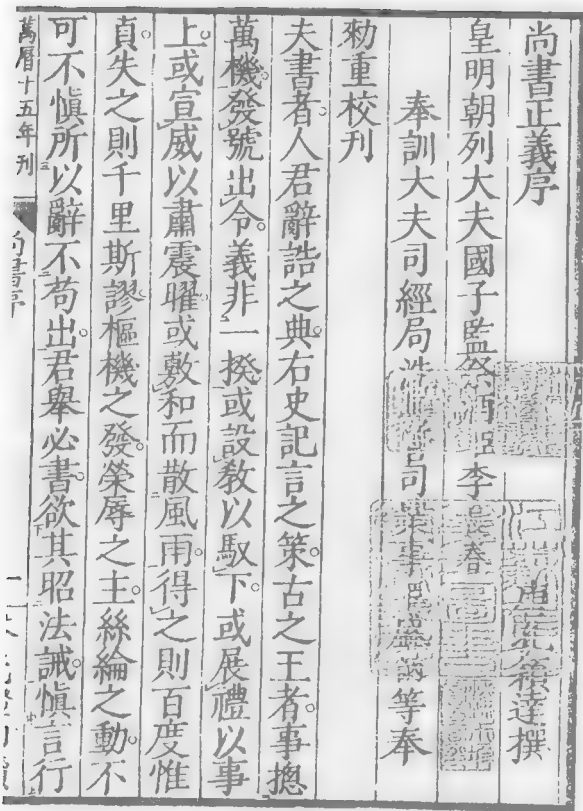 尚書正義序
達撰
皇明朝列大夫國子監祭酒臣李長春
奉訓大夫司經局洗司業事等奉
勑重校刊
夫書者。人君辭誥之典。右史記言之策。古之王者。事摠
萬機。發號出令。義非一揆。或設教以馭下。或展禮以事
上。或宣威以肅震曜。或敷和而散風雨。得之則百度惟
貞。失之則千里斯謬。樞機之發。榮辱之主。絲綸之動。不
可不慎。所以辭不苟出。君舉必書。欲其昭法誡。慎言行
萬曆十五年刊
尚書序